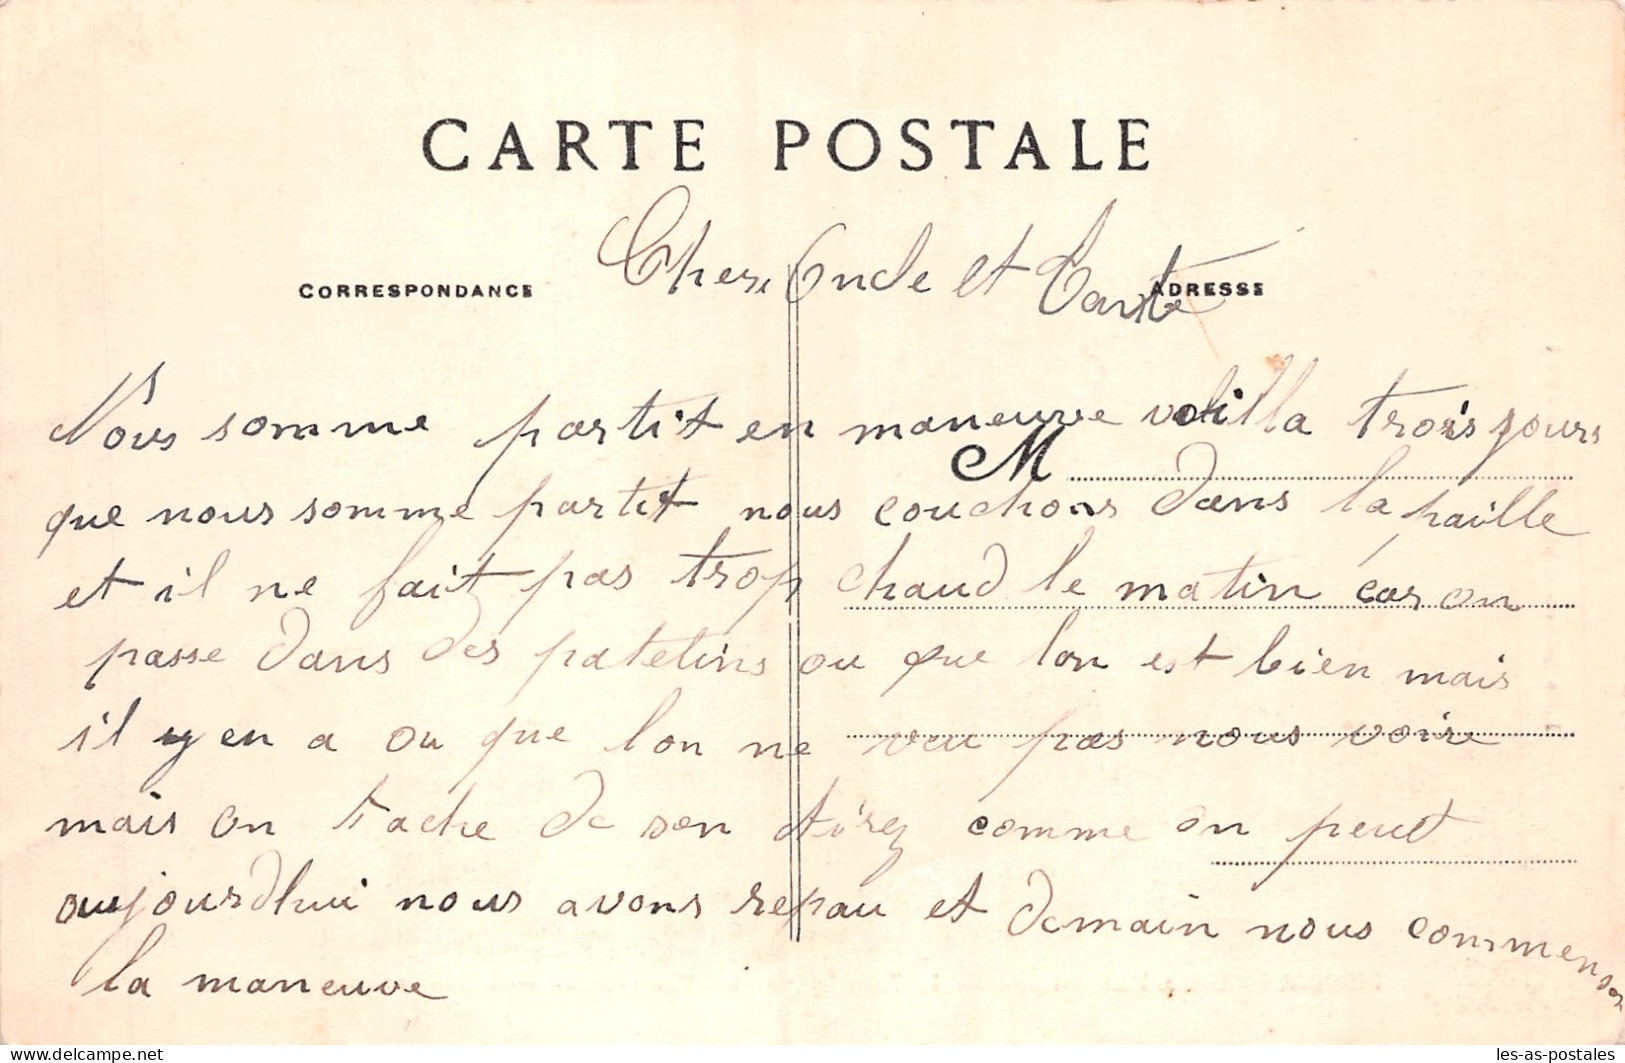 CARTE POSTALE
Cher Oncle et Tante
CORRESPONDANCE
ADRESSE
Nous somme partit en maneuvre voilla trois jours
M
que nous somme partit nous couchons dans la paille
et il ne fait pas trop chaud le matin car on
passe dans des patelins ou que lon est bien mais
il y en a ou que lon ne veu pas nous voire
mais on tache de son tirez comme on peut
aujourdhui nous avons repau et demain nous commenson
la maneuve
les-as-postales